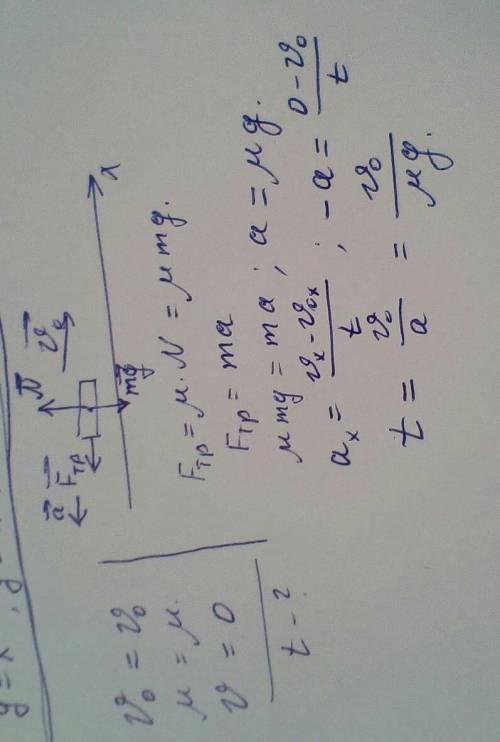 v₀ = v₀
μ = μ
v = 0
t - ?
a⃗ F⃗тр N⃗ v⃗₀
mg⃗
x
Fтр = μ · N = μmg.
Fтр = ma
μmg = ma ; a = μg.
aₓ = (vₓ - v₀ₓ)/t ; -a = (0 - v₀)/t
t = v₀/a = v₀/μg.